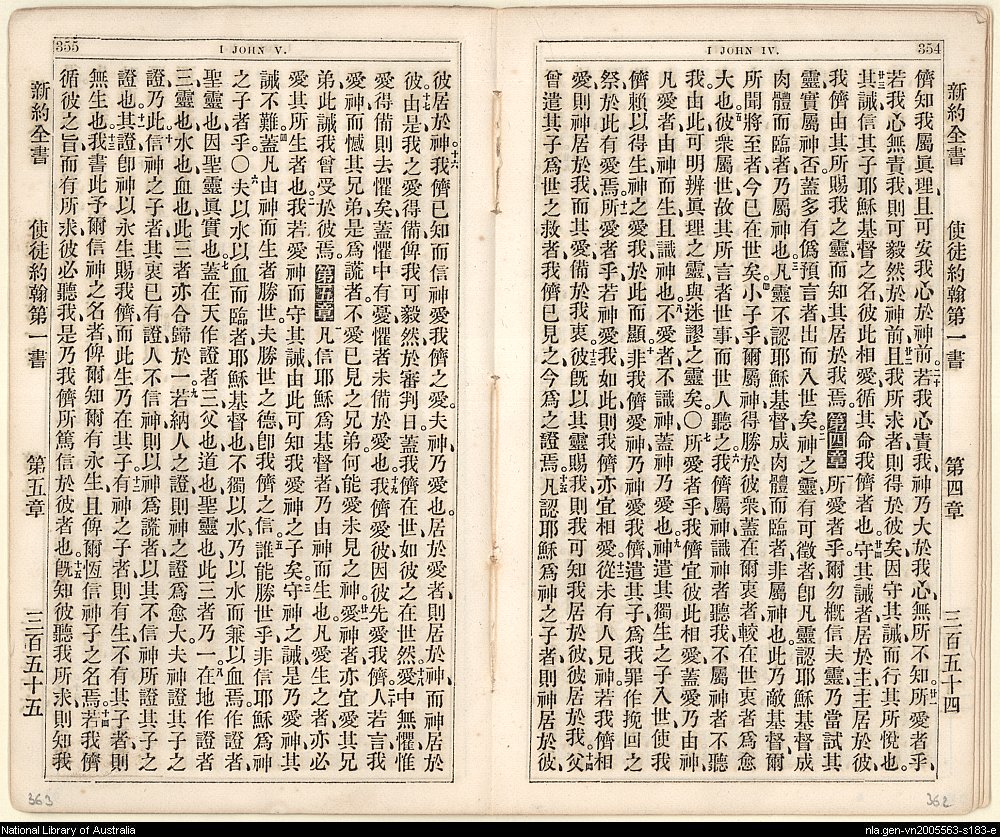 354
I JOHN IV.
新約全書 使徒約翰第一書 第四章 三百五十四
儕知我屬眞理、且可安我心於神前。二十若我心責我、神乃大於我心、無所不知。廿一所愛者乎、
若我心無責我、則可毅然於神前、廿二且我所求者、則得於彼矣、因守其誡、而行其所悅也。
廿三其誡信其子耶穌基督之名、彼此相愛、循其命我儕者也。廿四守其誡者、居於主、主居於彼、
我儕由其所賜我之靈、而知其居於我焉。第四章一所愛者乎、爾勿槪信夫靈、乃當試其
靈實屬神否、蓋多有僞預言者、出而入世矣。二神之靈有可徵者、卽凡靈認耶穌基督成
肉體而臨者、乃屬神也。三凡靈不認耶穌基督成肉體而臨者、非屬神也、此乃敵基督、爾
所聞將至者、今已在世矣。四小子乎、爾屬神、得勝於彼衆、蓋在爾衷者、較在世衷者爲愈
大也。五彼衆屬世、故其所言者世事、而世人聽之。六我儕屬神、識神者聽我、不屬神者不聽
我、由此可明辨眞理之靈、與迷謬之靈矣。〇七所愛者乎、我儕宜彼此相愛、蓋愛乃由神、
凡愛者由神而生、且識神也。八不愛者不識神、蓋神乃愛也。九神遣其獨生之子入世、使我
儕賴以得生、神之愛我、於此而顯。十非我儕愛神、乃神愛我儕、遣其子爲我罪作挽回之
祭、於此有愛焉。十一所愛者乎、若神愛我如此、則我儕亦宜相愛。十二從未有人見神、若我儕相
愛、則神居於我、而其愛備於我衷。十三彼旣以其靈賜我、則我可知我居於彼、彼居於我。十四父
曾遣其子爲世之救者、我儕已見之、今爲之證焉。十五凡認耶穌爲神之子者、則神居於彼、
362
355
I JOHN V.
彼居於神。十六我儕已知而信神愛我儕之愛。夫神乃愛也。居於愛者、則居於神、而神居於
彼。十七由是我之愛得備、俾我可毅然於審判日、蓋我儕在世、如彼之在世然。十八愛中無懼、惟
愛得備、則去懼矣、蓋懼中有憂、懼者未備於愛也。十九我儕愛彼、因彼先愛我儕。二十人若言我
愛神、而憾其兄弟、是爲謊者、不愛已見之兄弟、何能愛未見之神。廿一愛神者亦宜愛其兄
弟、此誡我曾受於彼焉。第五章一凡信耶穌爲基督者、乃由神而生也。凡愛生之者、亦必
愛其所生者也。二我若愛神而守其誡、由此可知我愛神之子矣。三守神之誡、是乃愛神、其
誡不難。四蓋凡由神而生者勝世、夫勝世之德、卽我儕之信。五誰能勝世乎、非信耶穌爲神
之子者乎。〇六夫以水以血而臨者、耶穌基督也、不獨以水、乃以水而兼以血焉。作證者、
聖靈也、因聖靈眞實也。七蓋在天作證者三、父也、道也、聖靈也、此三者乃一。八在地作證者
三、靈也、水也、血也、此三者亦合歸於一。九若納人之證、則神之證爲愈大、夫神證其子之
證、乃此。十信神之子者、其衷已有證、人不信神、則以神爲謊者、以其不信神所證其子之
證也。十一其證卽神以永生賜我儕、而此生乃在其子。十二有神之子者、則有生、不有其子者、則
無生也。十三我書此予爾信神之名者、俾爾知爾有永生、且俾爾恆信神子之名焉。十四若我儕
循彼之旨而有所求、彼必聽我、是乃我儕所篤信於彼者也。十五旣知彼聽我所求、則知我
新約全書 使徒約翰第一書 第五章 三百五十五
363
National Library of Australia
nla.gen-vn2005563-s183-e